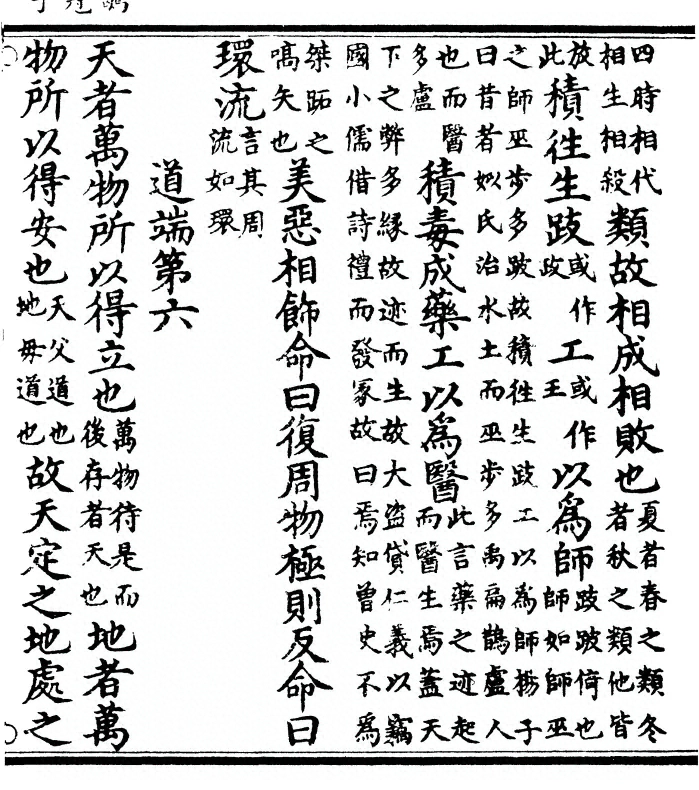 四時相代相生相殺類故相成相敗也夏者春之類冬者秋之類他皆
放此積徃生跂或作政工或作王以爲師跂跛倚也師如師巫
之師巫步多跛故積徃生跂工以爲師揚子曰昔者姒氏治水土而巫步多禹扁鵲盧人
也而醫多盧積毒成藥工以爲醫此言藥之迹起而醫生焉蓋天
下之弊多緣故迹而生故大盜貸仁義以竊國小儒借詩禮而發冢故曰焉知曾史不爲
桀跖之嚆矢也美惡相飾命曰復周物極則反命曰
環流言其周流如環
道端第六
天者萬物所以得立也萬物待是而後存者天也地者萬
物所以得安也天父道也地母道也故天定之地處之